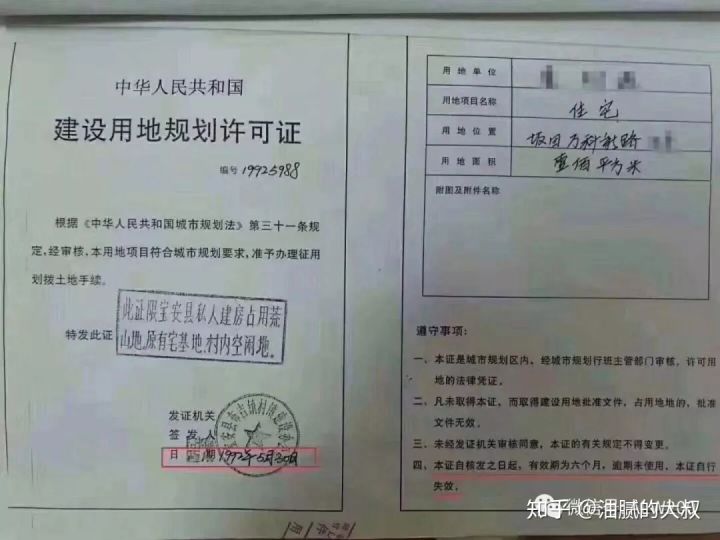 中华人民共和国
建设用地规划许可证
编号 19925988
根据《中华人民共和国城市规划法》第三十一条规
定,经审核,本用地项目符合城市规划要求,准予办理征用
划拨土地手续。
特发此证
此证限宝安县私人建房占用荒
山地。原有宅基地、村内空闲地。
发证机关
签发人
日期 1992年5月30日
用地单位
用地项目名称 住宅
用地位置 坂田万科新路
用地面积 壹佰平方米
附图及附件名称
遵守事项:
一、本证是城市规划区内、经城市规划行班主管部门审核,许可用
地的法律凭证。
二、凡未取得本证,而取得建设用地批准文件,占用地地的,批准
文件无效。
三、未经发证机关审核同意,本证的有关规定不得变更。
四、本证自核发之日起,有效期为六个月,逾期未使用,本证自行
失效。
知乎 @油腻的大叔